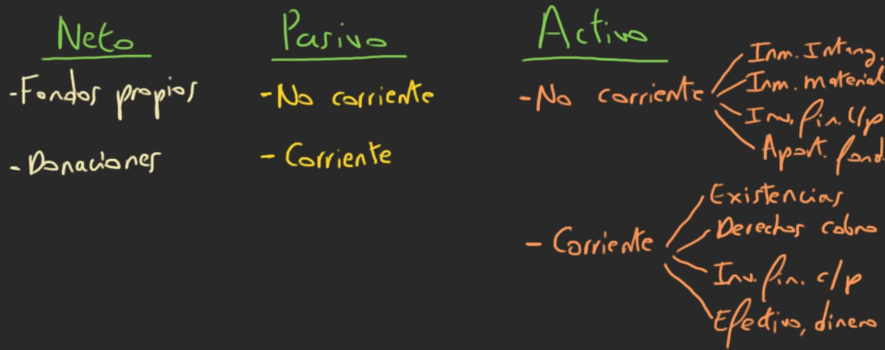 Neto
-Fondos propios
-Donaciones
Pasivo
-No corriente
-Corriente
Activo
-No corriente
Inm. Intang.
Inm. material
Inv. fin. l/p
Aport. fond.
-Corriente
Existencias
Derechos cobro
Inv. fin. c/p
Efectivo, dinero